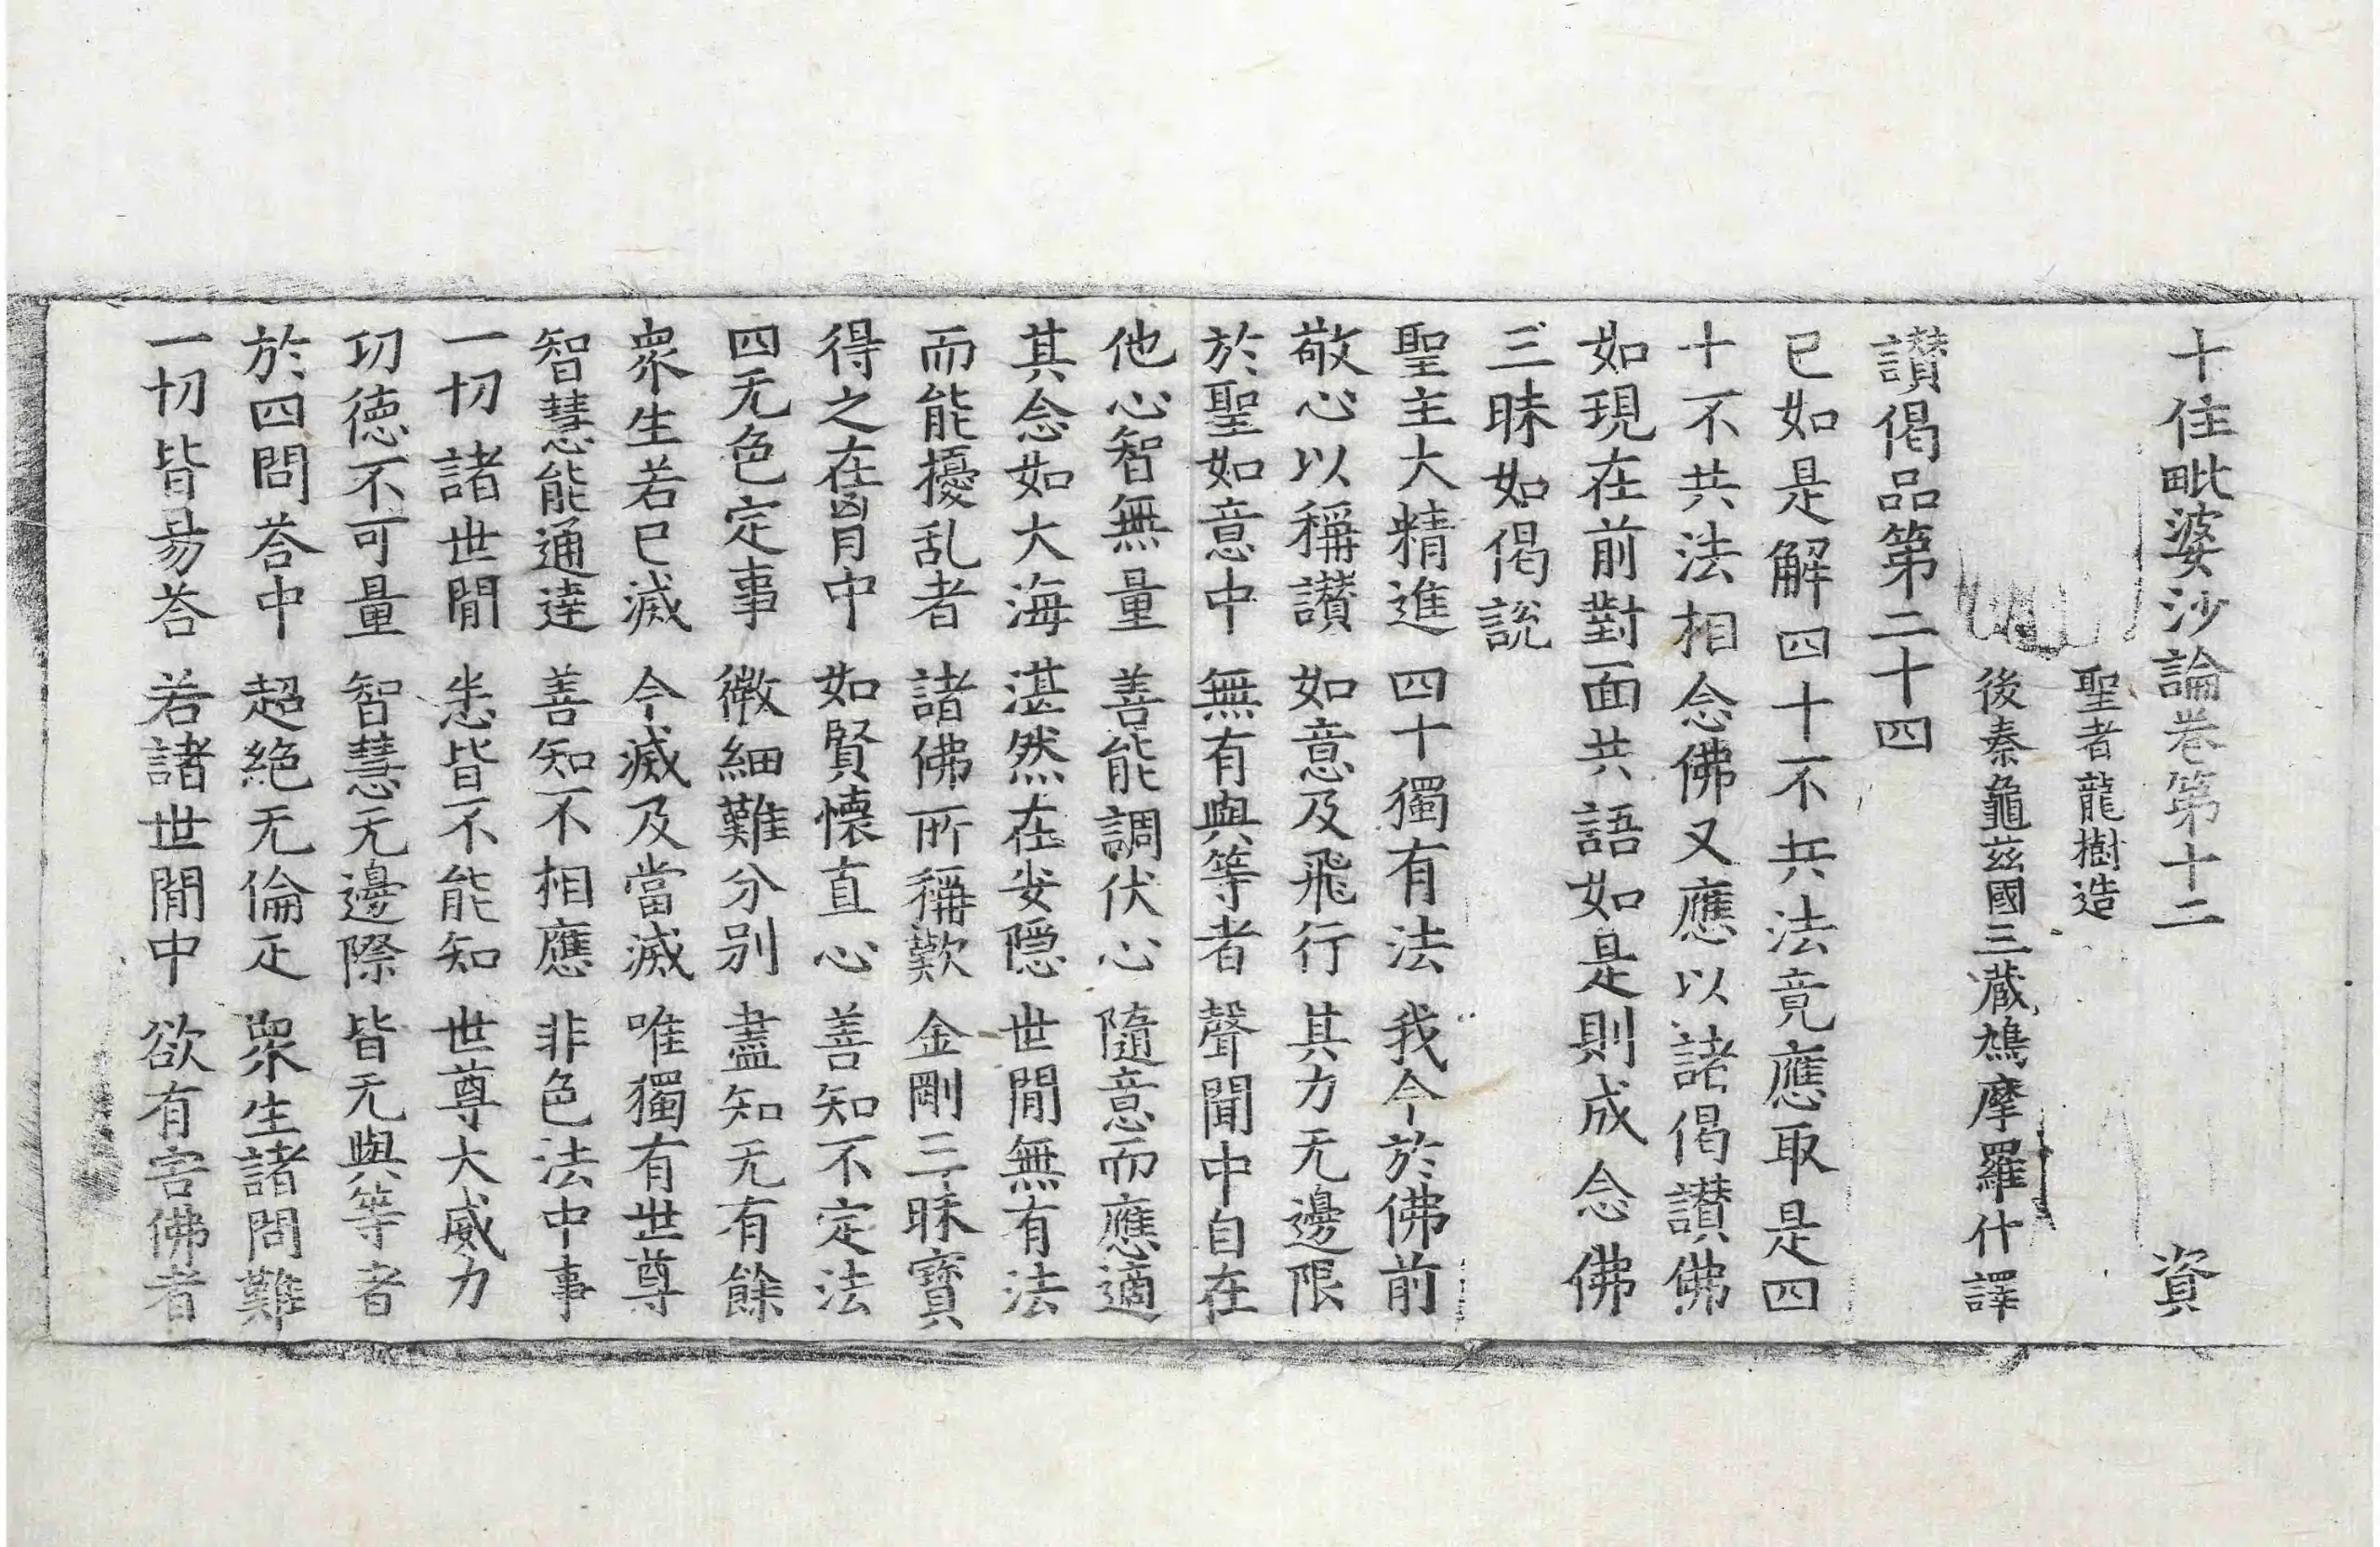 十住毗婆沙論卷第十二 資
聖者龍樹造
後秦龜兹國三藏鳩摩羅什譯
讃偈品第二十四
已如是解四十不共法竟應取是四
十不共法相念佛又應以諸偈讃佛
如現在前對面共語如是則成念佛
三昧如偈說
聖主大精進 四十獨有法 我今於佛前
敬心以稱讃 如意及飛行 其力无邊限
於聖如意中 無有與等者 聲聞中自在
他心智無量 善能調伏心 隨意而應適
其念如大海 湛然在安隱 世閒無有法
而能擾乱者 諸佛所稱歎 金剛三昧寶
得之在胷中 如賢懷直心 善知不定法
四无色定事 微細難分别 盡知无有餘
衆生若已滅 今滅及當滅 唯獨有世尊
智慧能通達 善知不相應 非色法中事
一切諸世閒 悉皆不能知 世尊大威力
功德不可量 智慧无邊際 皆无與等者
於四問荅中 超絶无倫匹 衆生諸問難
一切皆易荅 若諸世閒中 欲有害佛者